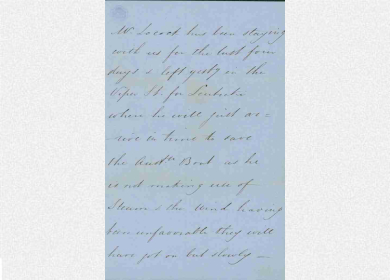 Mr Locock has been staying
with us for the last four
days & left yesty in the
Viper St. for
where he will just ar=
rive in time to save
the Aust[n] Boat as he
is not making use of
Steam & the wind having
been unfavorable they will
have got on but slowly —